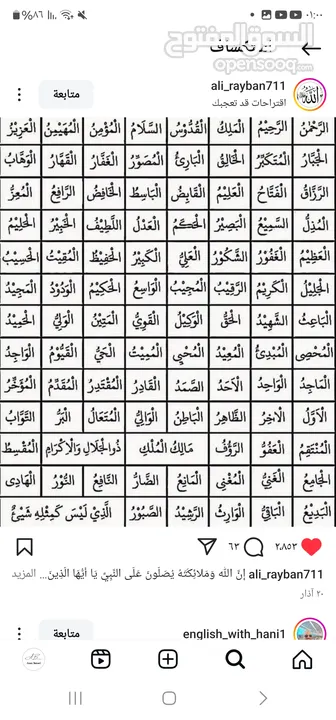 ٠١:٠٠
%٨٦
السوق المفتوح
opensooq.com
استكشاف
ali_rayban711
اقتراحات قد تعجبك
متابعة
الرَّحْمٰنُ الرَّحِيْمُ الْمَلِكُ الْقُدُّوْسُ السَّلَامُ الْمُؤْمِنُ الْمُهَيْمِنُ الْعَزِيْزُ
الْجَبَّارُ الْمُتَكَبِّرُ الْخَالِقُ الْبَارِئُ الْمُصَوِّرُ الْغَفَّارُ الْقَهَّارُ الْوَهَّابُ
الرَّزَّاقُ الْفَتَّاحُ الْعَلِيْمُ الْقَابِضُ الْبَاسِطُ الْخَافِضُ الرَّافِعُ الْمُعِزُّ
الْمُذِلُّ السَّمِيْعُ الْبَصِيْرُ الْحَكَمُ الْعَدْلُ اللَّطِيْفُ الْخَبِيْرُ الْحَلِيْمُ
الْعَظِيْمُ الْغَفُوْرُ الشَّكُوْرُ الْعَلِيُّ الْكَبِيْرُ الْحَفِيْظُ الْمُقِيْتُ الْحَسِيْبُ
الْجَلِيْلُ الْكَرِيْمُ الرَّقِيْبُ الْمُجِيْبُ الْوَاسِعُ الْحَكِيْمُ الْوَدُوْدُ الْمَجِيْدُ
الْبَاعِثُ الشَّهِيْدُ الْحَقُّ الْوَكِيْلُ الْقَوِيُّ الْمَتِيْنُ الْوَلِيُّ الْحَمِيْدُ
الْمُحْصِي الْمُبْدِئُ الْمُعِيْدُ الْمُحْيِي الْمُمِيْتُ الْحَيُّ الْقَيُّوْمُ الْوَاجِدُ
الْمَاجِدُ الْوَاحِدُ الْاَحَدُ الصَّمَدُ الْقَادِرُ الْمُقْتَدِرُ الْمُقَدِّمُ الْمُؤَخِّرُ
الْاَوَّلُ الْاٰخِرُ الظَّاهِرُ الْبَاطِنُ الْوَالِيُ الْمُتَعَالُ الْبَرُّ التَّوَّابُ
الْمُنْتَقِمُ الْعَفُوُّ الرَّؤُفُ مَالِكُ الْمُلْكِ ذُوالْجَلَالِ وَالْاِكْرَامِ الْمُقْسِطُ
الْجَامِعُ الْغَنِيُّ الْمُغْنِي الْمَانِعُ الضَّارُّ النَّافِعُ النُّوْرُ الْهَادِي
الْبَدِيْعُ الْبَاقِيُ الْوَارِثُ الرَّشِيْدُ الصَّبُوْرُ الَّذِيْ لَيْسَ كَمِثْلِهٖ شَيْئٌ
٢٬٨٥٣ ٦٣
ali_rayban711 إِنَّ اللَّه وَمَلائِكَتَهُ يُصَلُّونَ عَلَى النَّبِيِّ يَا أَيُّهَا الَّذِينَ... المزيد
٢٠ آذار
english_with_hani1
متابعة